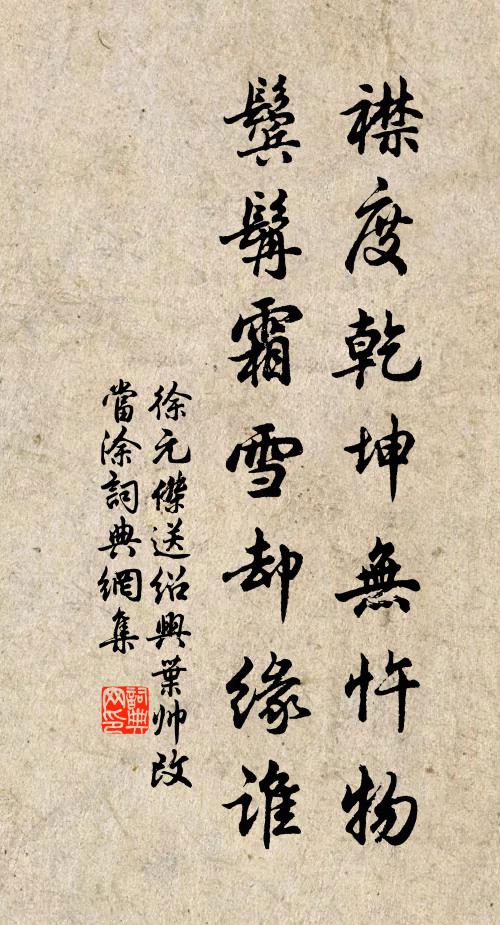 襟度乾坤無忤物
鬓髯霜雪却缘谁
徐元傑送绍興葉帅改
當涂詞典網集
詞典网印